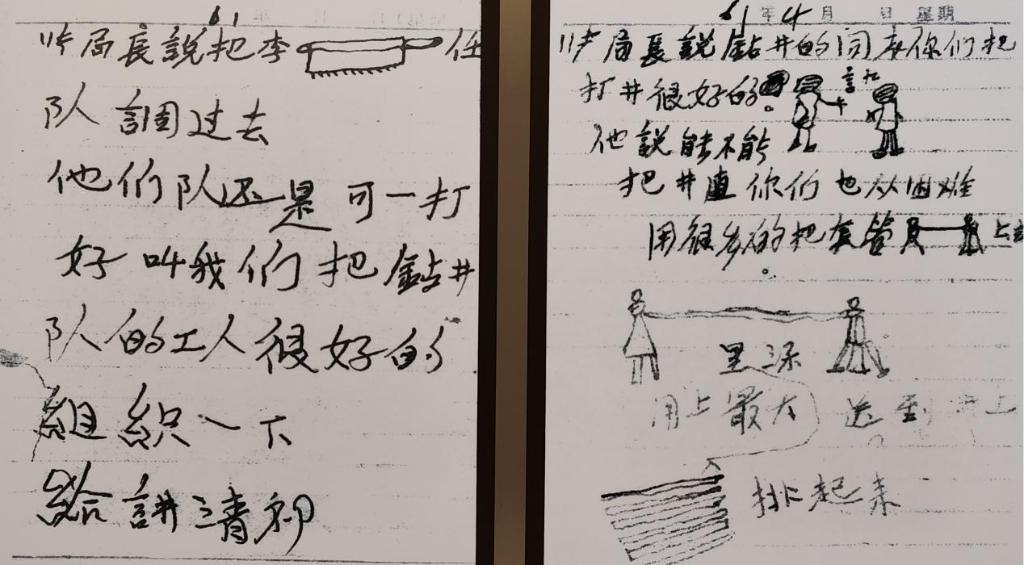 61
局长説把李 任
队 調过去
他们队还是可一打
好叫我们把鉆井
队的工人很好的
組織一下
給講清初
61年4月 日 星期
局長説鉆井的同志你们把
打井很好的。
他説能不能
把井直你们也从困难
用很多的把套管 上
用上最大 送到井上
排起来